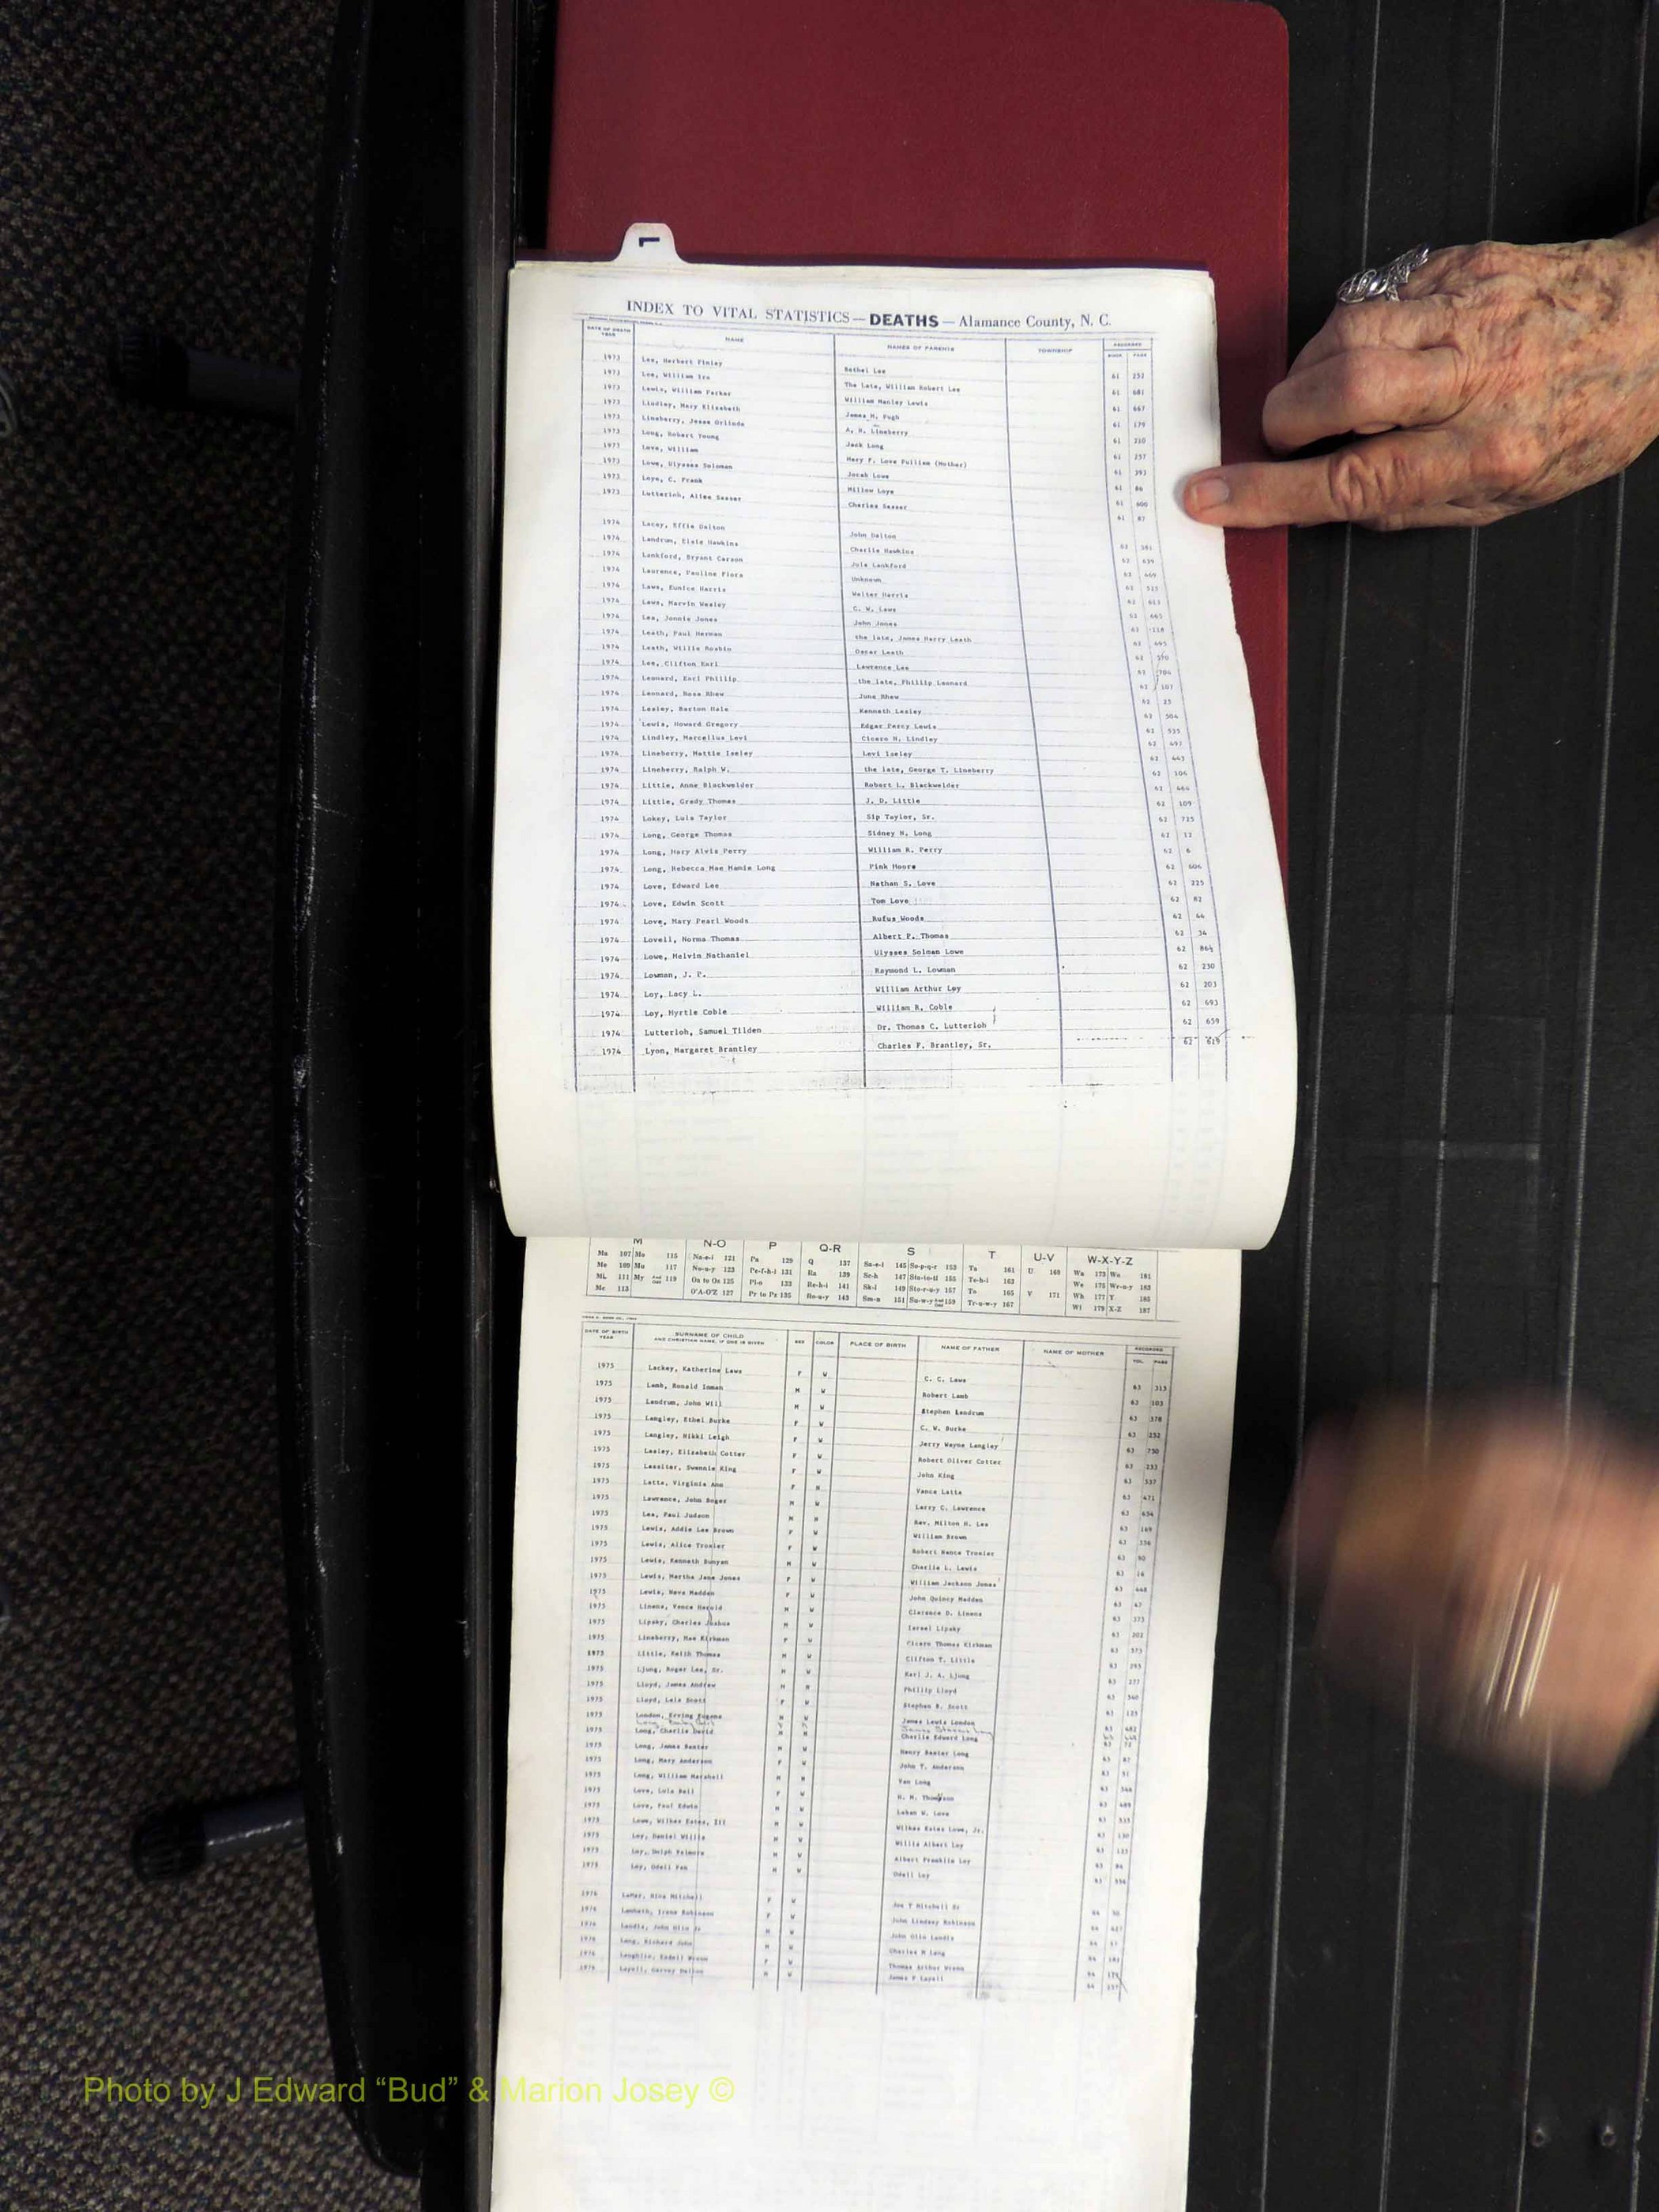 L
INDEX TO VITAL STATISTICS — DEATHS — Alamance County, N. C.
DATE OF DEATH YEAR NAME NAMES OF PARENTS TOWNSHIP RECORDED BOOK PAGE
1973 Lee, Herbert Finley Bethel Lee 61 252
1973 Lee, William Ira The Late, William Robert Lee 61 681
1973 Lewis, William Parker William Manley Lewis 61 667
1973 Lindley, Mary Elizabeth James M. Pugh 61 179
1973 Lineberry, Jesse Orlinda A. R. Lineberry 61 210
1973 Long, Robert Young Jack Long 61 257
1973 Love, William Mary F. Love Pulliam (Mother) 61 393
1973 Lowe, Ulysses Soloman Josah Lowe 61 86
1973 Loye, C. Frank Millow Loye 61 600
1973 Lutterloh, Aline Sesser Charles Sesser 61 87
1974 Lacey, Effie Dalton John Dalton 62 381
1974 Landrum, Elsie Hawkins Charlie Hawkins 62 639
1974 Lankford, Bryant Carson Jule Lankford 62 469
1974 Laurence, Pauline Flora Unknown 62 525
1974 Laws, Eunice Harris Walter Harris 62 613
1974 Laws, Marvin Wesley C. W. Laws 62 465
1974 Lea, Jonnie Jones John Jones 62 118
1974 Leath, Paul Herman the late, James Harry Leath 62 695
1974 Leath, Willie Rosbin Oscar Leath 62 570
1974 Lee, Clifton Earl Lawrence Lee 62 704
1974 Leonard, Earl Phillip the late, Phillip Leonard 62 107
1974 Leonard, Rosa Rhew June Rhew 62 25
1974 Lesley, Barton Hale Kenneth Lesley 62 504
1974 Lewis, Howard Gregory Edgar Percy Lewis 62 535
1974 Lindley, Marcellus Levi Cicero N. Lindley 62 497
1974 Lineberry, Mattie Iseley Levi Iseley 62 443
1974 Lineberry, Ralph W. the late, George T. Lineberry 62 506
1974 Little, Anne Blackwelder Robert L. Blackwelder 62 464
1974 Little, Grady Thomas J. D. Little 62 109
1974 Lokey, Lula Taylor Sip Taylor, Sr. 62 725
1974 Long, George Thomas Sidney H. Long 62 12
1974 Long, Mary Alvis Perry William R. Perry 62 6
1974 Long, Rebecca Mae Mamie Long Pink Moore 62 606
1974 Love, Edward Lee Nathan S. Love 62 225
1974 Love, Edwin Scott Tom Love 62 82
1974 Love, Mary Pearl Woods Rufus Woods 62 44
1974 Lovell, Norma Thomas Albert P. Thomas 62 34
1974 Lowe, Melvin Nathaniel Ulysses Solman Lowe 62 86½
1974 Lowman, J. P. Raymond L. Lowman 62 230
1974 Loy, Lacy L. William Arthur Loy 62 203
1974 Loy, Myrtle Coble William R. Coble 62 693
1974 Lutterloh, Samuel Tilden Dr. Thomas C. Lutterloh 62 659
1974 Lyon, Margaret Brantley Charles F. Brantley, Sr. 62 619
M N-O P Q-R S T U-V W-X-Y-Z
Ma 107 Mo 115 Na-e-i 121 Pa 129 Q 137 Sa-e-i 145 So-p-q-r 153 Ta 161 U 169 Wa 173 Wo 181
Me 109 Mu 117 No-u-y 123 Pe-f-h-i 131 Ra 139 Sc-h 147 Sta-te-ti 155 Te-h-i 163 We 175 Wr-u-y 183
Mi. 111 My And Odd 119 Oa to Oz 125 Pl-o 133 Re-h-i 141 Sk-l 149 Sto-r-u-y 157 To 165 V 171 Wh 177 Y 185
Mc 113 O'A-O'Z 127 Pr to Pz 135 Ro-u-y 143 Sm-n 151 Su-w-y And Odd 159 Tr-u-w-y 167 Wi 179 X-Z 187
DATE OF BIRTH YEAR SURNAME OF CHILD AND CHRISTIAN NAME, IF ONE IS GIVEN SEX COLOR PLACE OF BIRTH NAME OF FATHER NAME OF MOTHER RECORDED VOL. PAGE
1975 Lackey, Katherine Laws F W C. C. Laws 63 313
1975 Lamb, Ronald Inman M W Robert Lamb 63 103
1975 Landrum, John Will M W Stephen Landrum 63 378
1975 Langley, Ethel Burke F W C. W. Burke 63 252
1975 Langley, Nikki Leigh F W Jerry Wayne Langley 63 750
1975 Lasley, Elizabeth Cotter F W Robert Oliver Cotter 63 233
1975 Lassiter, Swannie King F W John King 63 537
1975 Latta, Virginia Ann F N Vance Latta 63 471
1975 Lawrence, John Roger M W Larry C. Lawrence 63 654
1975 Lee, Paul Judson M N Rev. Milton H. Lee 63 169
1975 Lewis, Addie Lee Brown F W William Brown 63 356
1975 Lewis, Alice Troxler F W Robert Nance Troxler 63 90
1975 Lewis, Kenneth Bunyan M W Charlie L. Lewis 63 16
1975 Lewis, Martha Jane Jones F W William Jackson Jones 63 448
1975 Lewis, Neva Madden F W John Quincy Madden 63 47
1975 Linens, Vance Harold M W Clarence D. Linens 63 373
1975 Lipsky, Charles Joshua M W Israel Lipsky 63 202
1975 Lineberry, Mae Kirkman F W Cicero Thomas Kirkman 63 573
1975 Little, Keith Thomas M W Clifton T. Little 63 295
1975 Ljung, Roger Lee, Sr. M W Karl J. A. Ljung 63 277
1975 Lloyd, James Andrew M N Phillip Lloyd 63 360
1975 Lloyd, Lela Scott F W Stephen B. Scott 63 125
1975 London, Erving Eugene M W James Lewis London 63 482
Long, Baby Girl James Steven Long
1975 Long, Charlie David M N Charlie Edward Long 63 72
1975 Long, James Baxter M W Henry Baxter Long 63 87
1975 Long, Mary Anderson F W John T. Anderson 63 51
1975 Long, William Marshall M N Van Long 63 546
1975 Love, Lula Bell F W H. M. Thompson 63 489
1975 Love, Paul Edwin M W Laban W. Love 63 335
1975 Lowe, Wilbur Estes, III M W Wilbur Estes Lowe, Jr. 63 130
1975 Loy, Daniel Willis M W Willis Albert Loy 63 123
1975 Loy, Dolph Palmore M W Albert Franklin Loy 63 84
1975 Loy, Odell Fan M W Odell Loy 63 556
1976 LaMar, Nina Mitchell F W Joe T Mitchell Sr 64
1976 Lambeth, Irene Robinson F W John Lindsey Robinson 64 427
1976 Landis, John Olin Jr M W John Olin Landis 64
1976 Lang, Richard John M W Charles M Lang 64
1976 Laughlin, Kadell Wrenn F W Thomas Arthur Wrenn 64
1976 Layell, Garvey Dalton M W James P Layell 64
Photo by J Edward “Bud” & Marion Josey ©